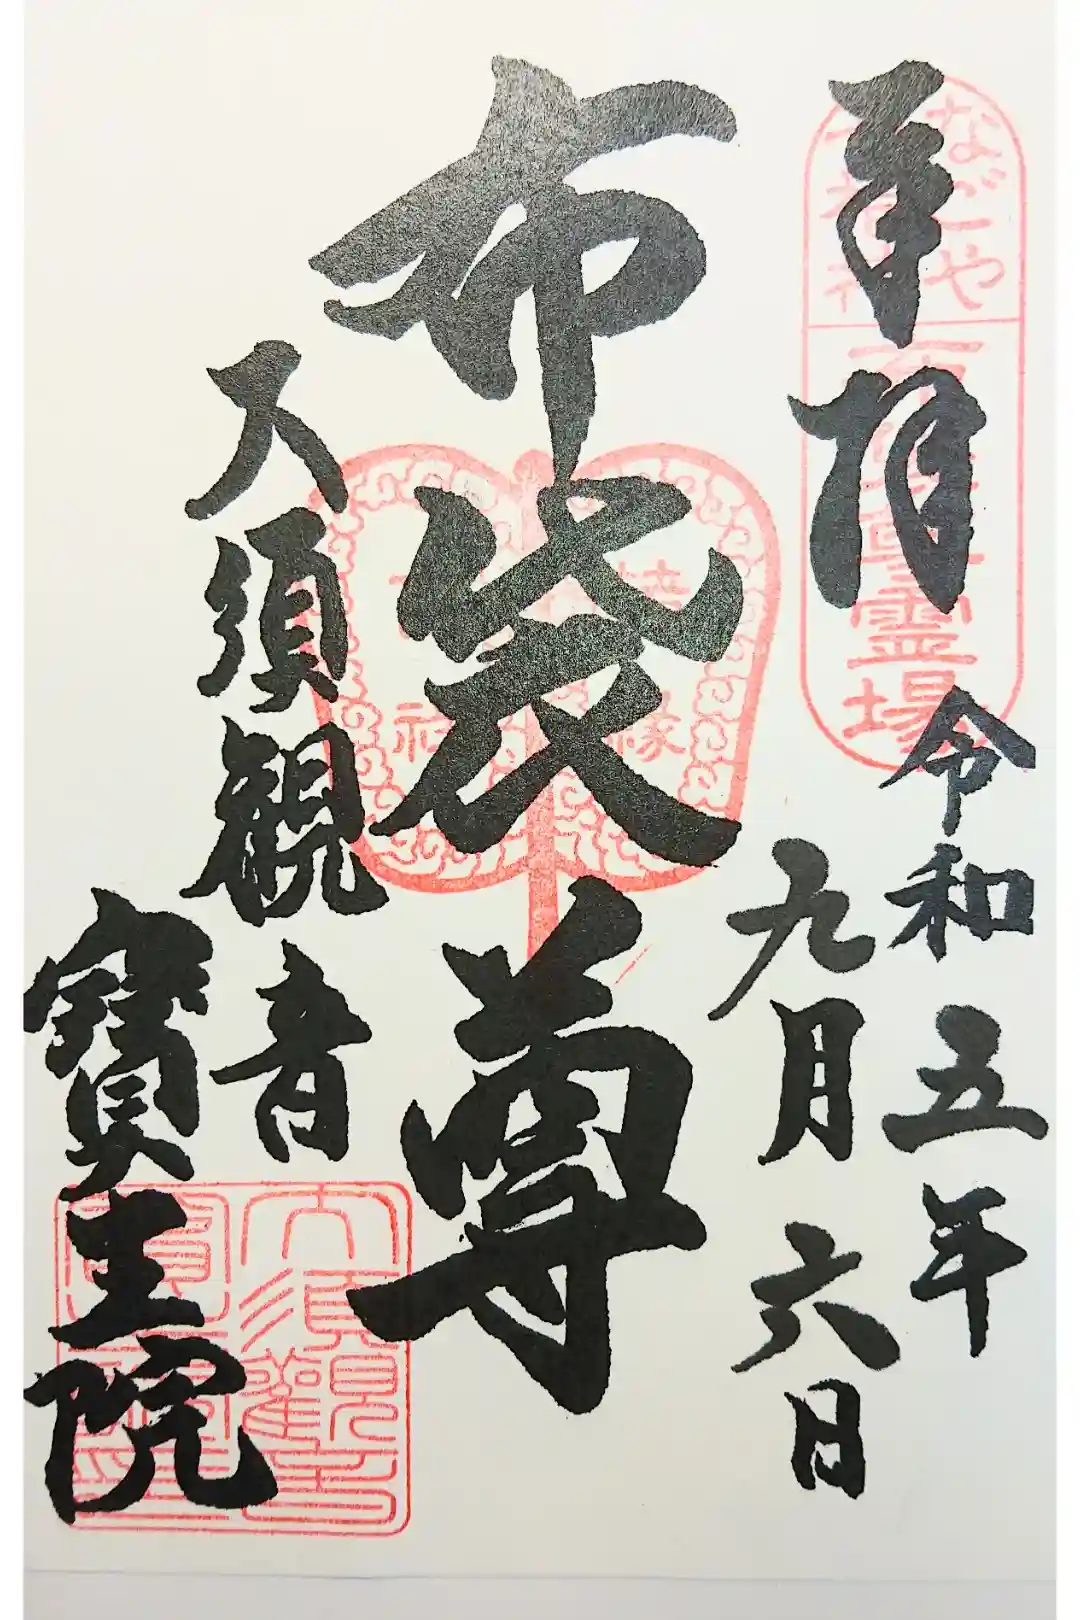 奉拝
令和五年
九月六日
布袋尊
大須観音
寶生院
なごや
七福神
霊場
大須観音